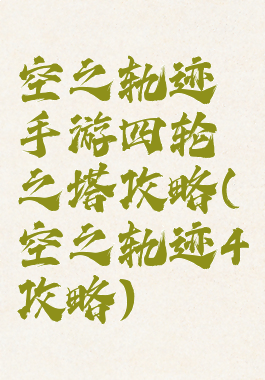 空之轨迹
手游四轮
之塔攻略(
空之轨迹4
攻略)